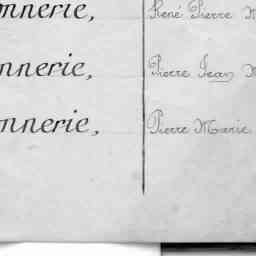 nnerie, René Pierre M
nnerie, Pierre Jean M
nnerie, Pierre Marie